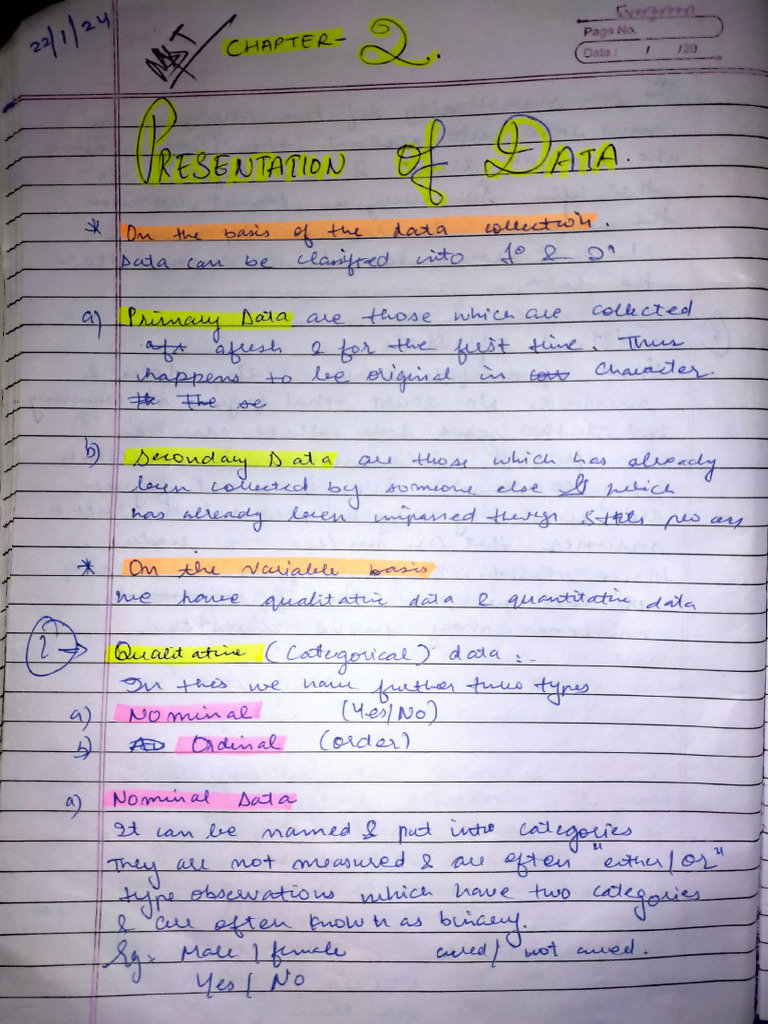 Evergreen
Page No.
Date : / /20
22/1/24
CHAPTER- 2.
PRESENTATION Of DATA.
* On the basis of the data collection.
Data can be classified into 1° & 2°
a) Primary Data are those which are collected
afresh & for the first time. Thus
happens to be original in character.
The se
b) Secondary Data are those which has already
been collected by someone else & which
has already been
* On the variable basis
we have qualitative data & quantitative data
i → Qualitative (Categorical) data :-
In this we have further two types
a) Nominal (Yes/No)
b) Ordinal (order)
a) Nominal Data
It can be named & put into categories
They are not measured & are often "either/or"
type observations which have two categories
& are often known as binary.
Eg:- Male / female cured/ not cured.
Yes / No